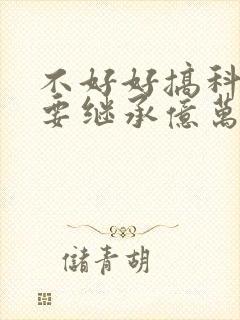 不好好搞科
要继承億萬
儲青胡